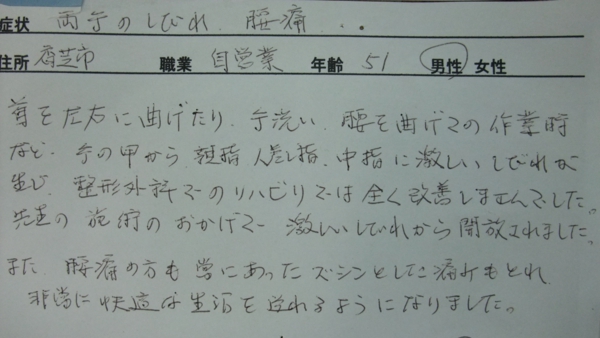 症状 両手のしびれ 腰痛 ..
住所 香芝市 職業 自営業 年齢 51 男性 女性
首を左右に曲げたり、手洗い、腰を曲げての作業時
など、手の甲から親指、人差し指、中指に激しいしびれが
生じ、整形外科でのリハビリでは全く改善しませんでした。
先生の施術のおかげで激しいしびれから開放されました。
また、腰痛の方も常にあったズシンとした痛みもとれ、
非常に快適な生活を送れるようになりました。